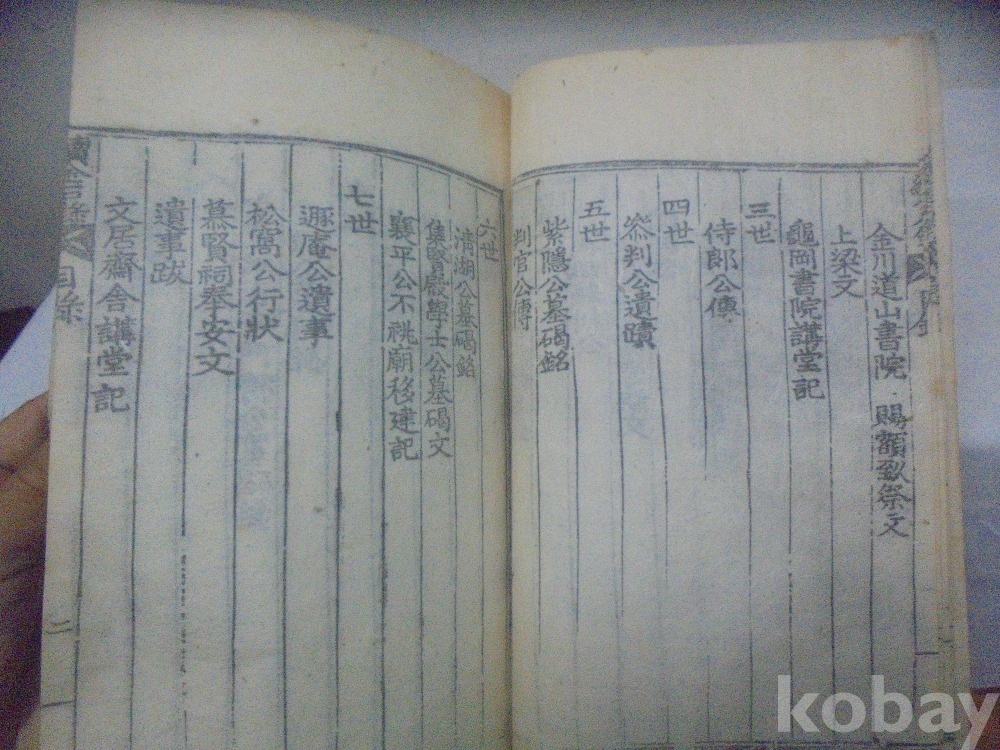 金川道山書院 賜額致祭文
上梁文
三世
龜岡書院講堂記
侍郎公傳
四世
參判公遺蹟
五世
紫隱公墓碣銘
判官公傳
六世
清湖公墓碣銘
集賢殿學士公墓碣文
襄平公不祧廟移建記
七世
遯庵公遺事
松窩公行狀
慕賢祠奉安文
遺事跋
文居齋舍講堂記
目錄
二
kobay